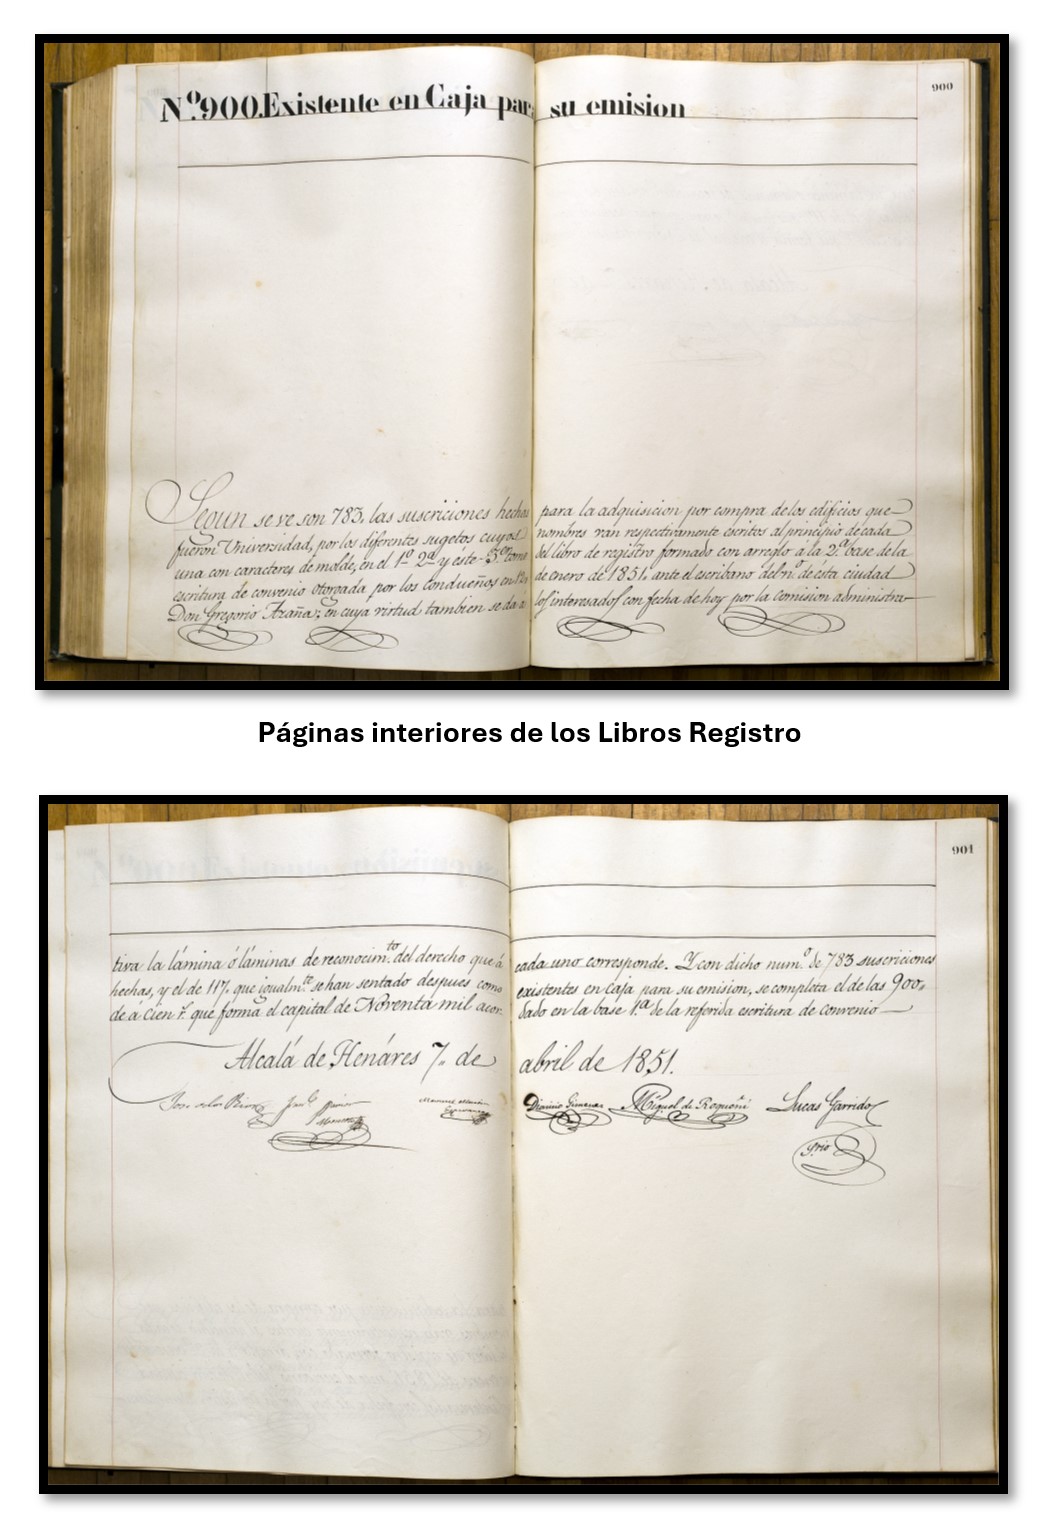 900
Nº.900.Existente en Caja para su emision
Segun se ve son 783, las suscriciones hechas para la adquisicion por compra de los edificios que
fueron Universidad, por los diferentes sugetos cuyos nombres van respectivamente escritos al principio de cada
una con caracteres de molde, en el 1º 2º y éste 3er tomo del libro de registro formado con arreglo a la 2ª base de la
escritura de convenio otorgada por los condueños en 12 de enero de 1851, ante el escribano del nº de ésta ciudad
Don Gregorio Azaña; en cuya virtud tambien se da á los interesados con fecha de hoy por la comision administra
Páginas interiores de los Libros Registro
901
tiva la lámina ó láminas de reconocimto del derecho que á cada uno corresponde. Y con dicho numº de 783 suscriciones
hechas, y el de 117, que igualmte se han sentado despues como existentes en Caja para su emision, se completa el de las 900,
de á cien r. que forma el capital de Noventa mil acordado en la base 1ª de la referida escritura de convenio
Alcalá de Henáres 7,, de abril de 1851.
Miguel de Roquñi Lucas Garrido
Srio